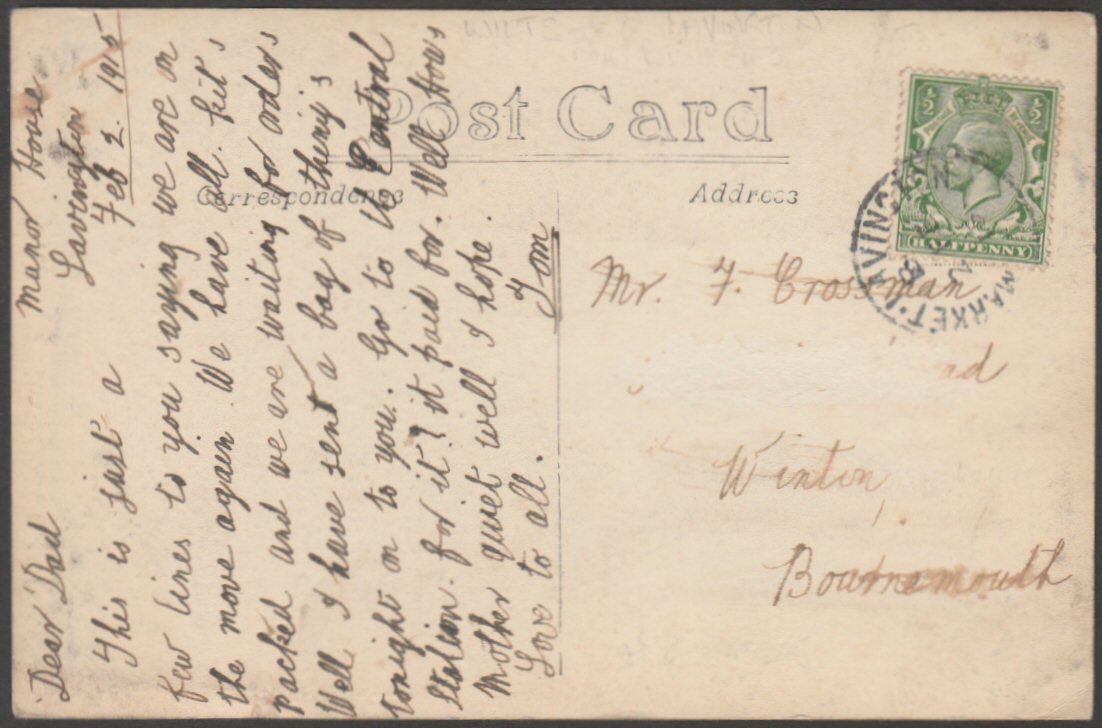 Manor House
Lavington
Feb 2. 1915
Dear Dad
This is just a
few lines to you saying we are on
the move again. We have all kit's
packed and we are waiting for orders
Well I have sent a bag of thing's
tonight on to you. Go to the Central
Station for it? it paid for. Well Hows
Mother quiet well I hope.
Love to all. Tom
Post Card
Correspondence
Address
½ ½
HALFPENNY
MARKET LAVINGTON
Mr. F. Crossman
ad
Winton,
Bournemouth